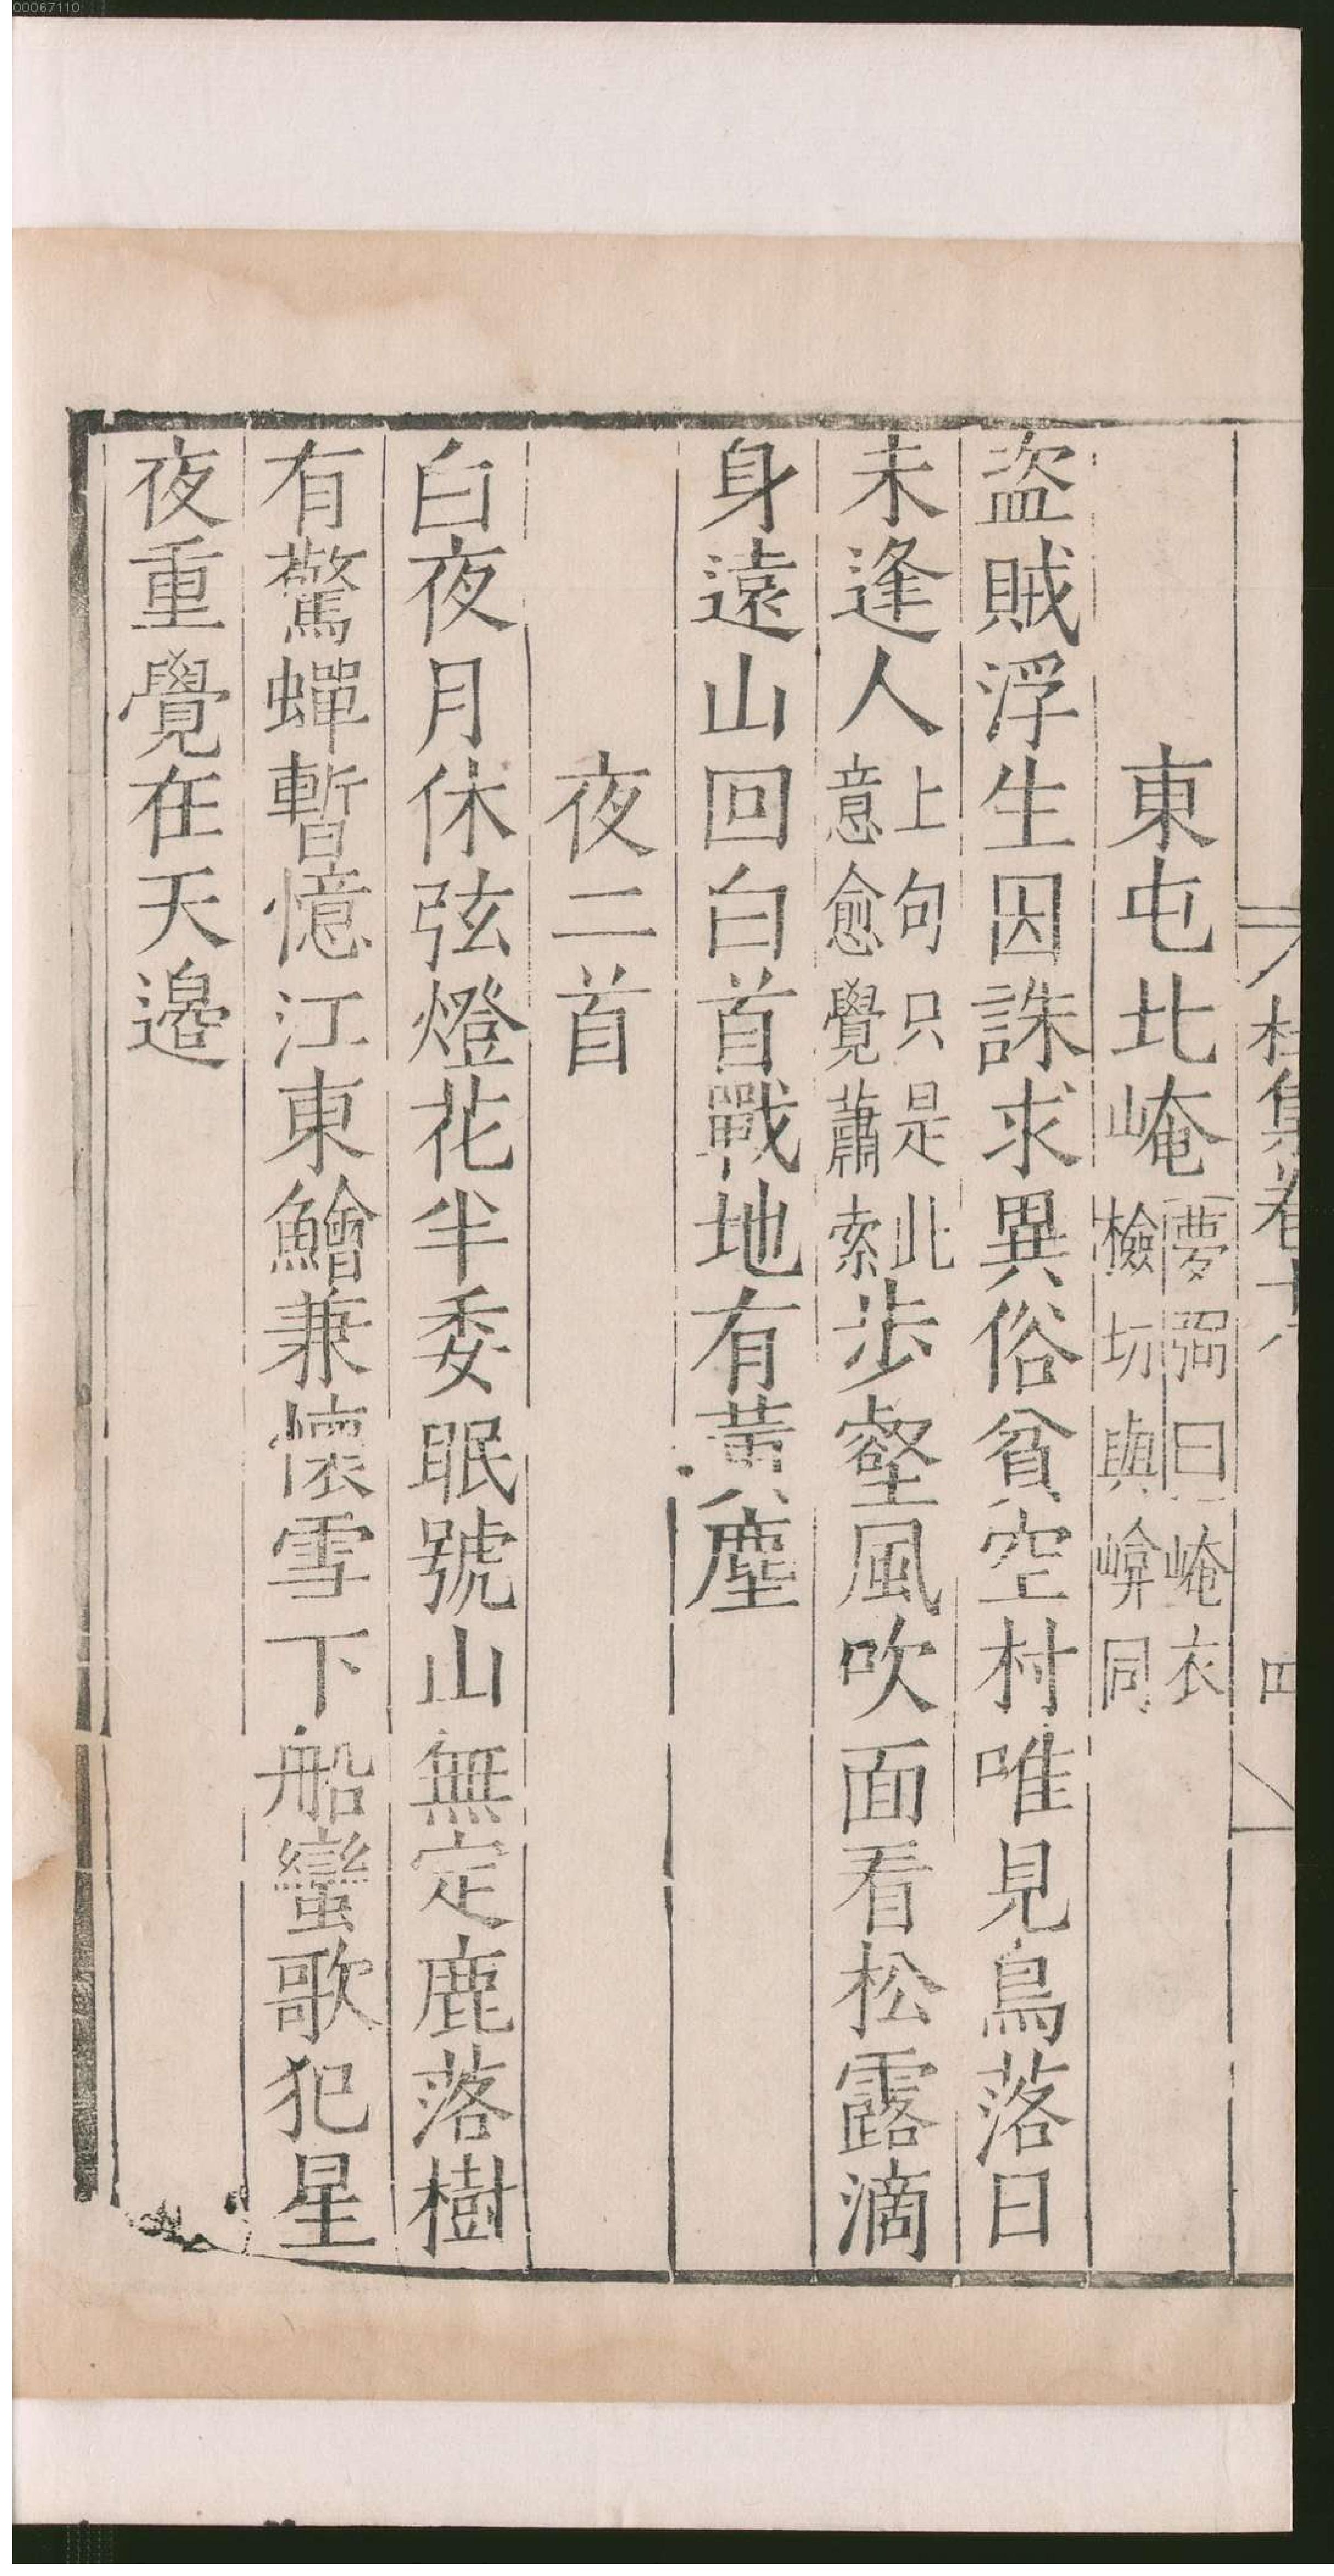 00067110
杜集卷十八
四
東屯北崦夢弼曰崦衣檢切與㟇同
盗賊浮生困誅求異俗貧空村唯見鳥落日
未逢人上句只是此意愈覺蕭索歩壑風吹面看松露滴
身遠山回白首戰地有黃塵
夜二首
白夜月休弦燈花半委眠號山無定鹿落樹
有驚蟬暫憶江東鱠兼懷雪下船蠻歌犯星
夜重覺在天邉